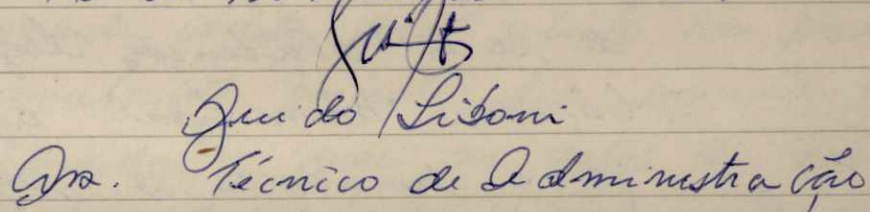 Guido Liboni
Técnico de Administração